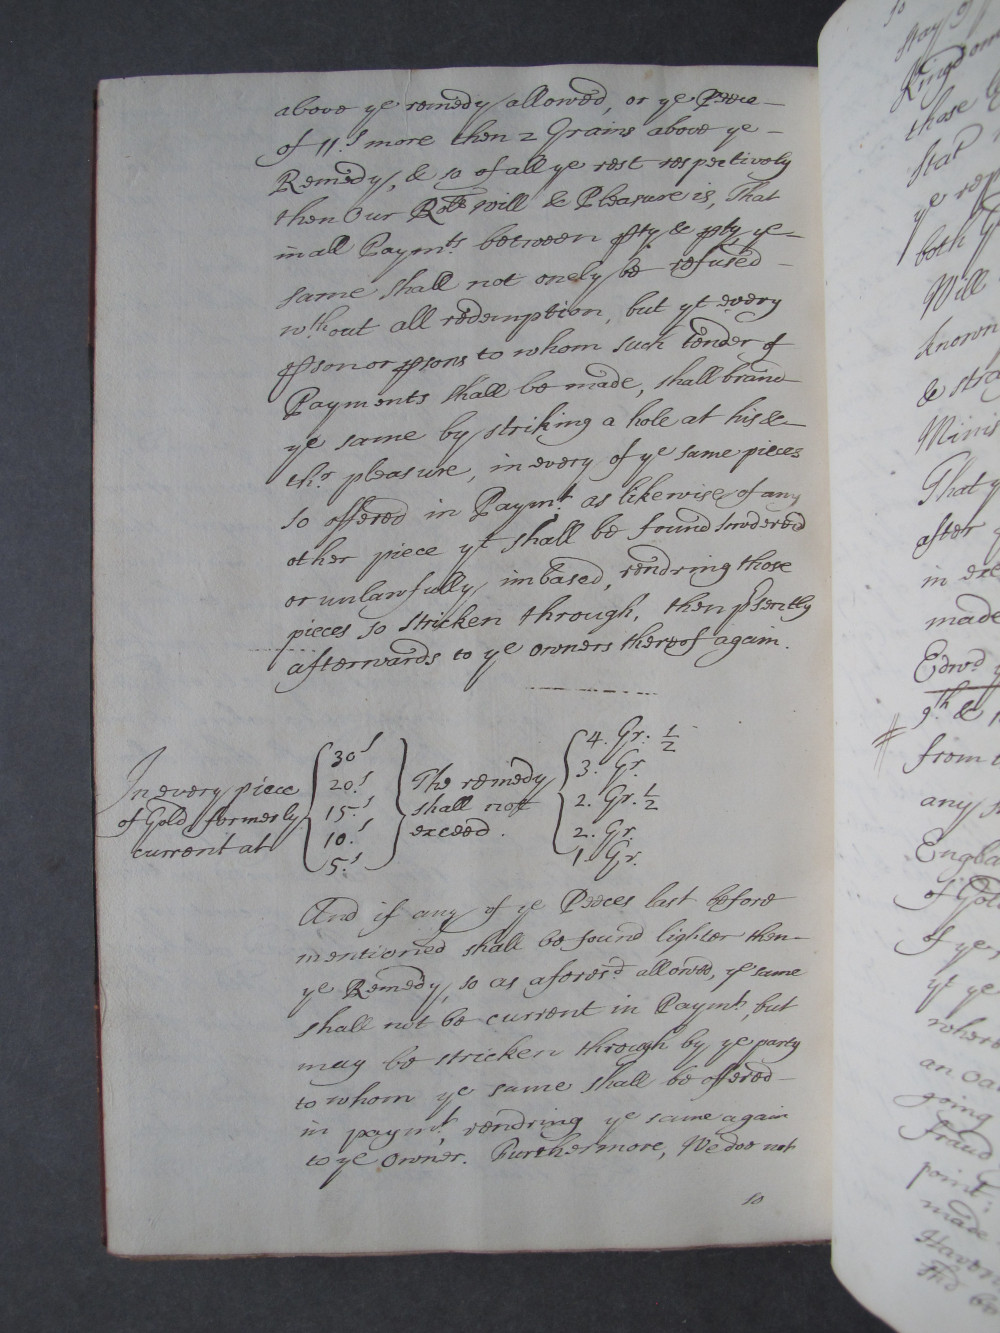 above ye remedy allowed, or ye Peece
of 11.s more then 2 Grains above ye
Remedy, & so of all ye rest respectively
then Our Roll will & Pleasure is, That
in all Paymts between pty & pty ye
same shall not onely be refused
wthout all redemption, but yt every
pson or psons to whom such tender of
Payments shall be made, shall brand
ye same by striking a hole at his &
thr pleasure, in every of ye same pieces
so offered in Paymt as likewise of any
other piece yt shall be found sodered
or unlawfully imbased, rendring those
pieces so stricken through, then psently
afterwards to ye owners thereof again.
In every piece of Gold formerly current at
30s
20.s
15.s
10.s
5.s
The remedy shall not exceed.
4. Gr. 1/2
3. Gr.
2. Gr. 1/2
2. Gr.
1. Gr.
And if any of ye Peeces last before
mentioned shall be found lighter then
ye Remedy, so as aforesd allowed, ye same
shall not be current in Paymt, but
may be stricken through by ye party
to whom ye same shall be offered
in paymt, rendring ye same again
to ye owner. Furthermore, We doe not
so
Kingdom
those
both
Will
known
& stra
Minis
That y
after
in exc
made
Edwd
9th &
from
any s
Engla
of Gold
of ye
yt ye
where
an Oa
going
fraud
point;
made